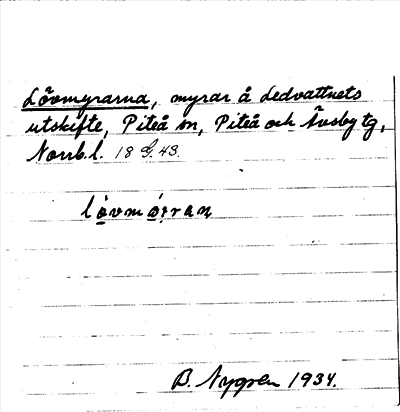 Lövmyrarna, myrar å Ledvattnets
utskifte, Piteå sn, Piteå och Älvsby tg,
Norrb. l. 18 G. 43.
lövmörran
B. Nygren 1934.